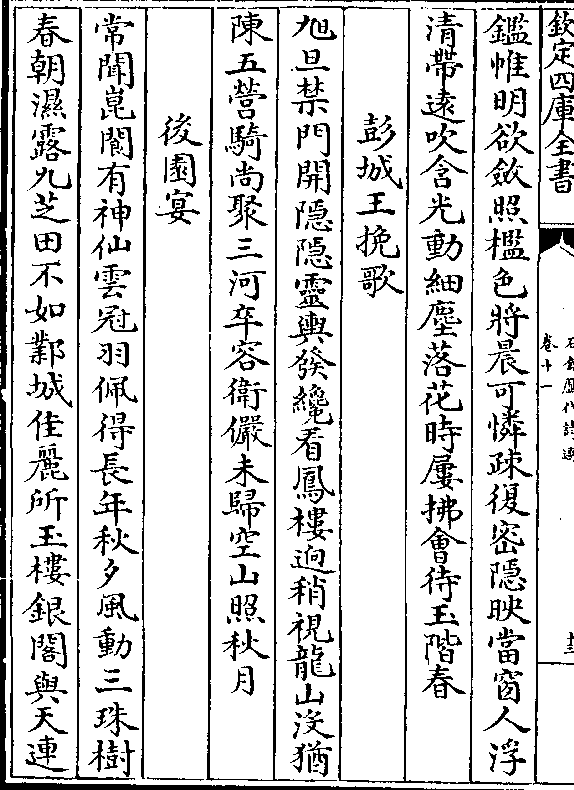 欽定四庫全書
石倉歷代詩選
卷十一
鑑帷明欲斂照檻色將晨可憐疎復密隱映當窗人浮
清帶遠吹含光動細塵落花時屢拂會待玉階春
彭城王挽歌
旭旦禁門開隱隱靈輿發纔看鳳樓迥稍視龍山沒猶
陳五營騎尚聚三河卒容衛儼未歸空山照秋月
後園宴
常聞崑閬有神仙雲冠羽佩得長年秋夕風動三珠樹
春朝濕露九芝田不如鄴城佳麗所玉樓銀閣與天連